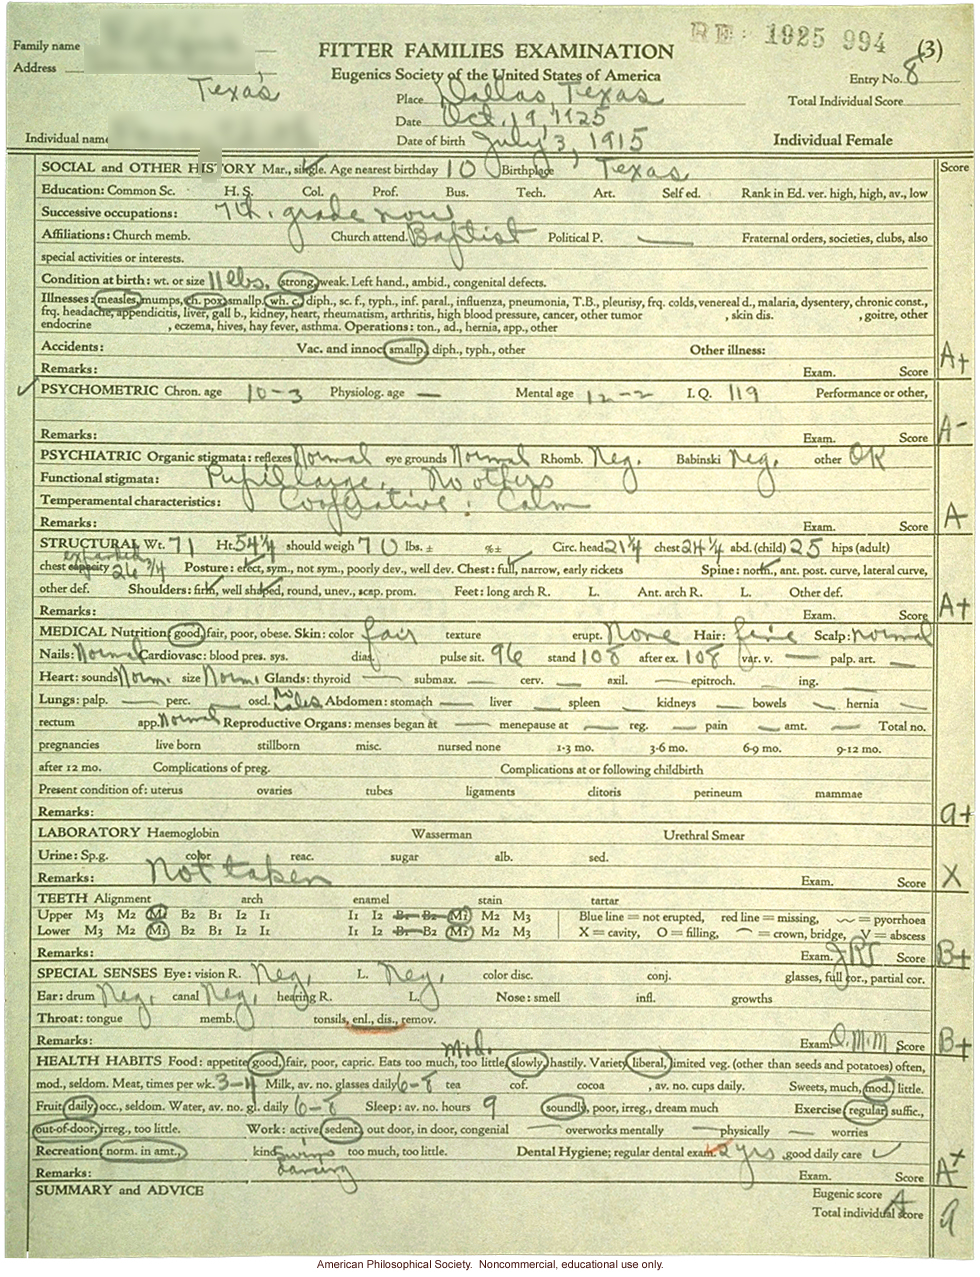 RE: 1925 994 (3)
Family name
FITTER FAMILIES EXAMINATION
Address
Eugenics Society of the United States of America
Entry No. 8
Texas
Place Dallas, Texas
Total Individual Score
Date Oct. 19, 1925
Individual name
Date of birth July 3, 1915
Individual Female
SOCIAL and OTHER HISTORY Mar., single. Age nearest birthday 10 Birthplace Texas Score
Education: Common Sc. H. S. Col. Prof. Bus. Tech. Art. Self ed. Rank in Ed. ver. high, high, av., low
Successive occupations: 7th. grade now
Affiliations: Church memb. Church attend. Baptist Political P. — Fraternal orders, societies, clubs, also
special activities or interests.
Condition at birth: wt. or size 11 lbs. strong, weak. Left hand., ambid., congenital defects.
Illnesses: measles, mumps, ch. pox, smallp. wh. c., diph., sc. f., typh., inf. paral., influenza, pneumonia, T.B., pleurisy, frq. colds, venereal d., malaria, dysentery, chronic const.,
frq. headache, appendicitis, liver, gall b., kidney, heart, rheumatism, arthritis, high blood pressure, cancer, other tumor , skin dis. , goitre, other
endocrine , eczema, hives, hay fever, asthma. Operations: ton., ad., hernia, app., other
Accidents: Vac. and innoc. smallp., diph., typh., other Other illness:
Remarks: Exam. Score A+
PSYCHOMETRIC Chron. age 10-3 Physiolog. age — Mental age 12-2 I. Q. 119 Performance or other,
Remarks: Exam. Score A-
PSYCHIATRIC Organic stigmata: reflexes Normal eye grounds Normal Rhomb. Neg. Babinski Neg. other OK
Functional stigmata: Pupil large. No others
Temperamental characteristics: Cooperative: Calm
Remarks: Exam. Score A-
STRUCTURAL Wt. 71 Ht. 54 1/4 should weigh 70 lbs. ± %± Circ. head 21 1/4 chest 24 1/4 abd. (child) 25 hips (adult)
chest capacity expanded 26 3/4 Posture: erect, sym., not sym., poorly dev., well dev. Chest: full, narrow, early rickets Spine: norm., ant. post. curve, lateral curve,
other def. Shoulders: firm, well shaped, round, unev., scap. prom. Feet: long arch R. L. Ant. arch R. L. Other def.
Remarks: Exam. Score A+
MEDICAL Nutrition: good, fair, poor, obese. Skin: color fair texture erupt. None Hair: fine Scalp: normal
Nails: Normal Cardiovasc: blood pres. sys. dias. pulse sit. 96 stand 108 after ex. 108 var. v. — palp. art. —
Heart: sounds Norm. size Norm. Glands: thyroid — submax. — cerv. — axil. — epitroch. — ing. —
Lungs: palp. — perc. — oscl. No rales Abdomen: stomach — liver — spleen — kidneys — bowels — hernia —
rectum app. Normal Reproductive Organs: menses began at — menopause at — reg. — pain — amt. — Total no.
pregnancies live born stillborn misc. nursed none 1-3 mo. 3-6 mo. 6-9 mo. 9-12 mo.
after 12 mo. Complications of preg. Complications at or following childbirth
Present condition of: uterus ovaries tubes ligaments clitoris perineum mammae
Remarks: a+
LABORATORY Haemoglobin Wasserman Urethral Smear
Urine: Sp.g. color reac. sugar alb. sed.
Remarks: Not taken Exam. Score X
TEETH Alignment arch enamel stain tartar
Upper M3 M2 M1 B2 B1 I2 I1 I1 I2 B1 B2 M1 M2 M3 Blue line = not erupted, red line = missing, = pyorrhoea
Lower M3 M2 M1 B2 B1 I2 I1 I1 I2 B1 B2 M1 M2 M3 X = cavity, O = filling, = crown, bridge, V = abscess
Remarks: Exam. Score B+
SPECIAL SENSES Eye: vision R. Neg. L. Neg. color disc. conj. glasses, full cor., partial cor.
Ear: drum Neg. canal Neg. hearing R. L. Nose: smell infl. growths
Throat: tongue memb. tonsils, enl., dis., remov.
Remarks: Exam. O.M.M Score B+
HEALTH HABITS Food: appetite good, fair, poor, capric. Eats too much, too little, mod. slowly, hastily. Variety liberal, limited veg. (other than seeds and potatoes) often,
mod., seldom. Meat, times per wk. 3-4 Milk, av. no. glasses daily 6-8 tea cof. cocoa , av. no. cups daily. Sweets, much, mod., little.
Fruit daily, occ., seldom. Water, av. no. gl. daily 6-8 Sleep: av. no. hours 9 soundly, poor, irreg., dream much Exercise regular, suffic.,
out-of-door, irreg., too little. Work: active, sedent., out door, in door, congenial — overworks mentally — physically — worries
Recreation norm. in amt., kind swims dancing too much, too little. Dental Hygiene; regular dental exam. 2 yrs , good daily care ✓
Remarks: Exam. Score A+
SUMMARY and ADVICE Eugenic score A
Total individual score a
American Philosophical Society. Noncommercial, educational use only.